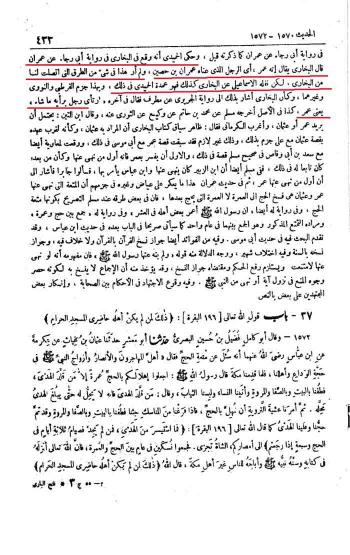 الحديث ١٥٧٠ - ١٥٧٢ ٤٣٣
في رواية أبي رجاء عن عمران كما ذكرته قبل ، وحكى الحميدي أنه وقع في البخاري في رواية أبي رجاء عن عمران
قال البخاري يقال إنه عمر ، أي الرجل الذي عناه عمران بن حصين ، ولم أر هذا في شيء من الطرق التي اتصلت لنا
من البخاري ، لكن نقله الإسماعيلي عن البخاري كذلك فهو عمدة الحميدي في ذلك ، وبهذا جزم القرطبي والنووي
وغيرهما ، وكأن البخاري أشار بذلك إلى رواية الجريري عن مطرف فقال في آخره « ارتأى رجل برأيه ما شاء ،
يعني عمر » كذا في الأصل أخرجه مسلم عن محمد بن حاتم عن وكيع عن الثوري عنه ، وقال ابن التين : يحتمل أن
يريد عمر أو عثمان ، وأغرب الكرماني فقال : ظاهر سياق كتاب البخاري أن المراد به عثمان ، وكأنه لقرب عهده
بقصة عثمان مع علي جزم بذلك ، وذلك غير لازم فقد سبقت قصة عمر مع أبي موسى في ذلك ، ووقعت لمعاوية أيضا
مع سعد بن أبي وقاص في صحيح مسلم قصة في ذلك ، والأولى أن يفسر بعمر فإنه أول من نهى عنها وكأن من بعده
كان تابعا له في ذلك ، ففي مسلم أيضا أن ابن الزبير كان ينهى عنها وابن عباس يأمر بها ، فسألوا جابرا فأشار إلى
أن أول من نهى عنها عمر ، ثم في حديث عمران هذا ما يعكر على عياض وغيره في جزمهم أن المتعة التي نهى عنها
عمر وعثمان هي فسخ الحج إلى العمرة لا العمرة التي يحج بعدها ، فإن في بعض طرقه عند مسلم التصريح بكونها متعة
الحج ، وفي رواية له أيضا أن رسول الله ﷺ أعمر بعض أهله في العشر ، وفي رواية له ، جمع بين حج وعمرة ،
ومراده التمتع المذكور وهو الجمع بينهما في عام واحد كما سيأتي صريحا في الباب بعده في حديث ابن عباس ، وقد
تقدم البحث فيه في حديث أبي موسى . وفيه من الفوائد أيضا جواز نسخ القرآن بالقرآن ولا خلاف فيه ، وجواز
نسخه بالسنة وفيه اختلاف شهير ، ووجه الدلالة منه قوله ، ولم ينه عنها رسول الله ﷺ ، فإن مفهومه أنه لو نهى
عنها لامتنعت ، ويستلزم رفع الحكم ومقتضاه جواز النسخ ، وقد يؤخذ منه أن الإجماع لا ينسخ به لكونه حصر
وجوه المنع في نزول آية أو نهي من النبي ﷺ ، وفيه وقوع الاجتهاد في الأحكام بين الصحابة ، وإنكار بعض
المجتهدين على بعض بالنص
٣٧ - باب قول الله تعالى [ ١٩٦ البقرة ] : ﴿ ذلك لمن لم يكن أهله حاضري المسجد الحرام ﴾
١٥٧٢ - وقال أبو كامل فضيل بن حسين البصري حدثنا أبو معشر حدثنا عثمان بن غياث عن عكرمة
عن ابن عباس رضي الله عنهما أنه سئل عن متعة الحج فقال : أهل المهاجرون والأنصار وأزواج النبي ﷺ في
حجة الوداع وأهللنا ، فلما قدمنا مكة قال رسول الله ﷺ : اجعلوا إهلالكم بالحج عمرة إلا من قلد الهدي ،
فطفنا بالبيت وبالصفا والمروة وأتينا النساء ولبسنا الثياب ، وقال : من قلد الهدي فإنه لا يحل له حتى يبلغ الهدي
محله . ثم أمرنا عشية التروية أن نهل بالحج ، فإذا فرغنا من المناسك جئنا فطفنا بالبيت وبالصفا والمروة وقد تم
حجنا وعلينا الهدي كما قال الله تعالى [ ١٩٦ البقرة ] : ﴿ فما استيسر من الهدي ، فمن لم يجد فصيام ثلاثة أيام في
الحج وسبعة إذا رجعتم ﴾ إلى أمصاركم ، الشاة تجزي . فجمعوا نسكين في عام بين الحج والعمرة ، فإن الله تعالى أنزله
في كتابه وسنه نبيه ﷺ وأباحه للناس غير أهل مكة ، قال الله : ﴿ ذلك لمن لم يكن أهله حاضري المسجد الحرام ﴾
م - ٥٥ ج ٣ * فتح الباري